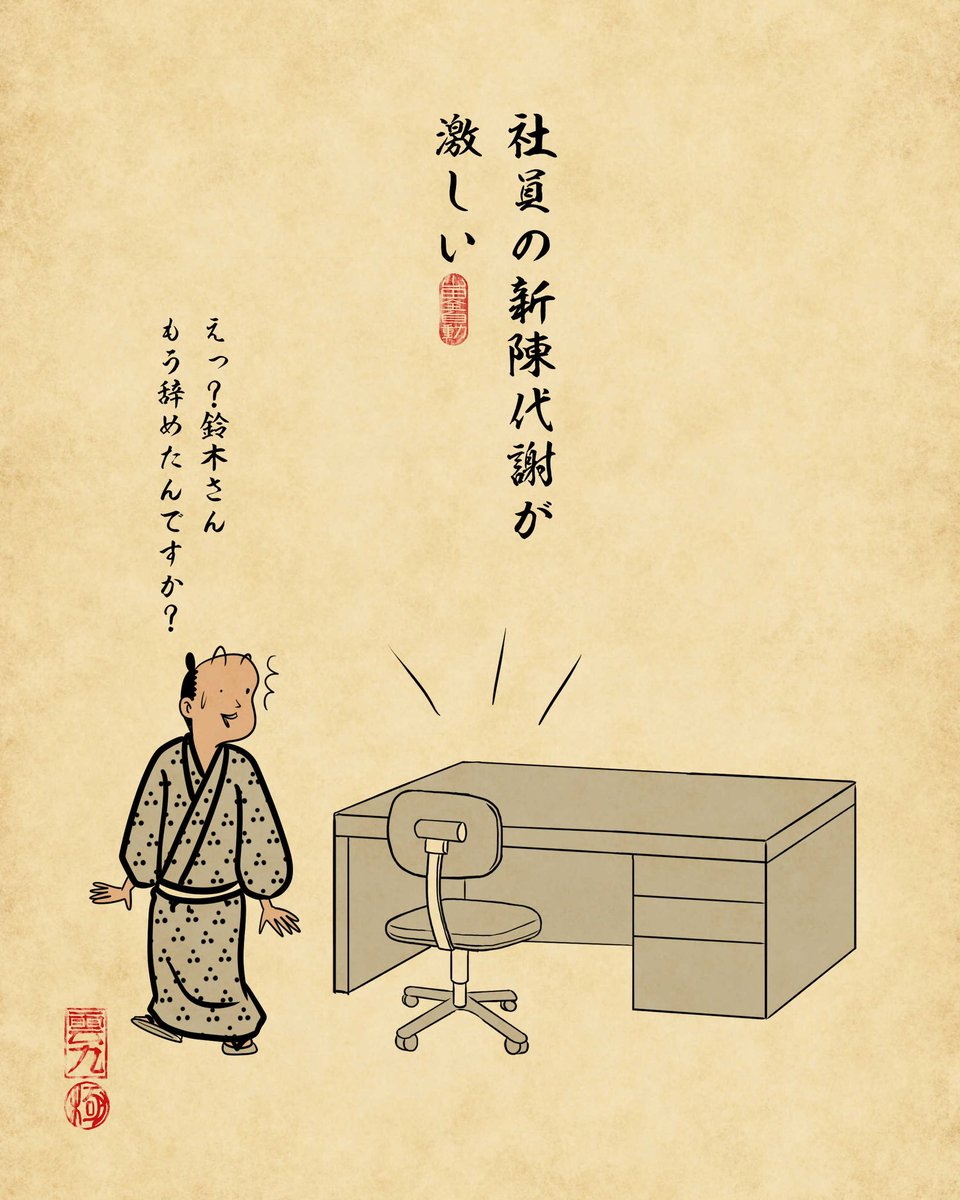 社員の新陳代謝が
激しい
えっ?鈴木さん
もう辞めたんですか?